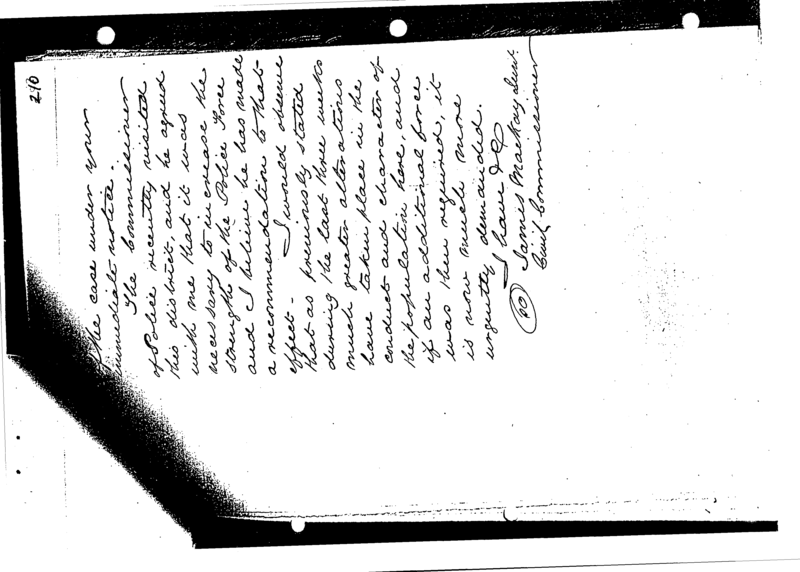 290
of the case under your
immediate notice.
The Commissioner
of Police recently visited
this district, and he agreed
with me that it was
necessary to increase the
strength of the Police Force
and I believe he has made
a recommendation to that
effect - I would observe
that as previously stated
during the last three weeks
much greater alterations
have taken place in the
conduct and character of
the population here, and
if an additional force
was then required, it
is now much more
urgently demanded.
I have &c
James Mackay Junr.
Civil Commissioner